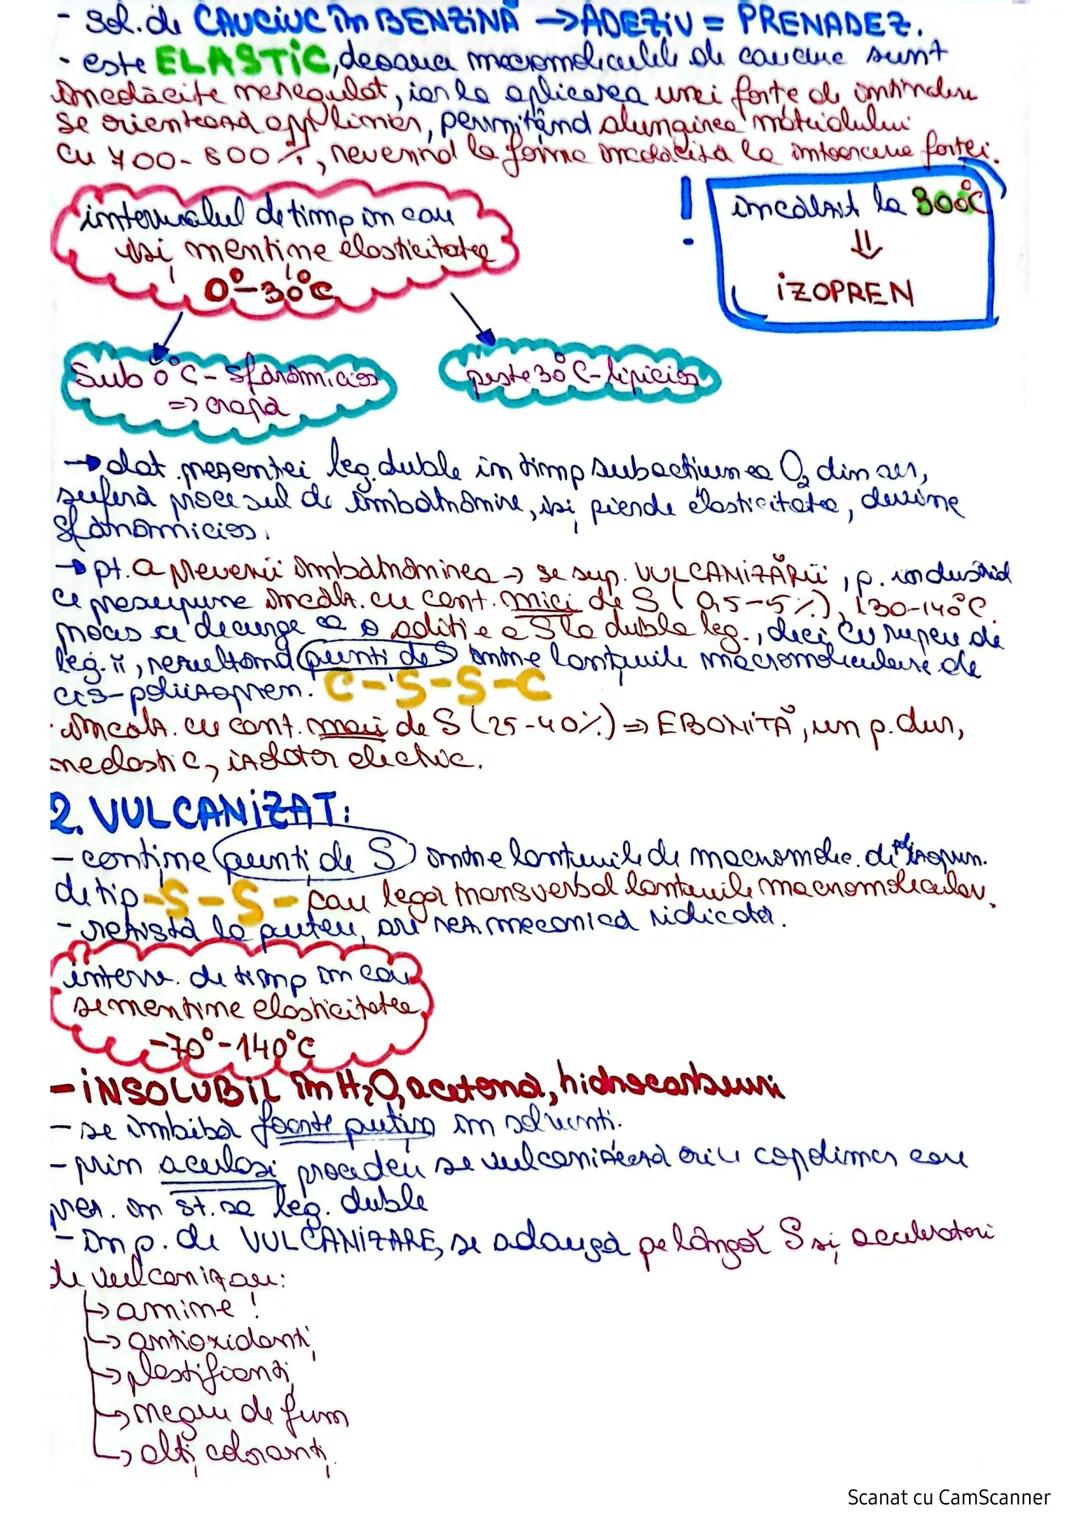 - sol. de CAUCIUC în BENZINĂ → ADEZIV = PRENADEZ.
- este ELASTIC, deoarece macromoleculele de cauciuc sunt
încolăcite neregulat, iar la aplicarea unei forțe de întindere
se orientează liniar, permițând alungirea materialului
cu 700-800%, revenind la forma încolăcită la încetarea forței.
intervalul de timp în care
își menține elasticitatea
0°-30°C
! încălzit la 300°C
⇓
IZOPREN
Sub 0°C - sfărâmicios
=> crapă
peste 30°C - lipicios
→ dat. prezenței leg. duble în timp sub acțiunea O₂ din aer,
suferă procesul de îmbătrânire, își pierde elasticitatea, devine
sfărâmicios.
→ pt. a preveni îmbătrânirea → se sup. VULCANIZĂRII, p. industrial
ce presupune încălz. cu cant. mici de S (0,5-5%), 130-140°C
proces ce decurge ca o adiție a S la dubla leg., deci cu rupere de
leg. π, rezultând punți de S între lanțurile macromoleculare de
cis-poliizopren. C-S-S-C
· încălz. cu cant. mari de S (25-40%) => EBONITĂ, un p. dur,
neelastic, izolator electric.
2. VULCANIZAT:
- conține punți de S între lanțurile de macromolec. de poliizopren.
de tip -S-S- care leagă transversal lanțurile macromolecular.
- rezistă la rupere, are rez. mecanică ridicată.
interv. de timp în care
se menține elasticitatea
-70°-140°C
- INSOLUBIL în H₂O, acetonă, hidrocarburi
- se îmbibă foarte puțin în solvenți.
- prin același procedeu se vulcanizează orice copolimer care
prez. în st. sa leg. duble
- în p. de VULCANIZARE, se adaugă pe lângă S și acceleratori
de vulcanizare:
↳ amine!
↳ antioxidanți
↳ plastifianți
↳ negru de fum
↳ alți coloranți
Scanat cu CamScanner